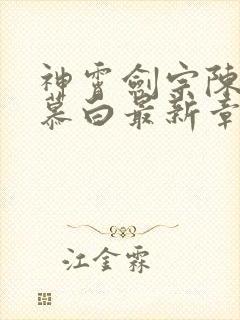 神霄剑宗陈
慕白最新章
江金霖